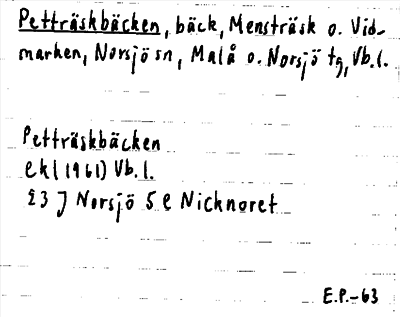 Petträskbäcken, bäck, Mensträsk o. Vid-
marken, Norsjö sn, Malå o. Norsjö tg, Vb.l.
Petträskbäcken
ekl (1961) Vb.l.
23 J Norsjö S e Nicknoret
E.P.-63